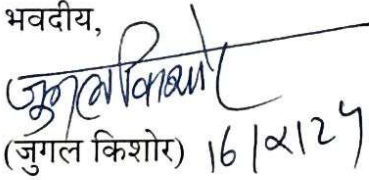 भवदीय,
जुगल किशोर
(जुगल किशोर) 16/2/24